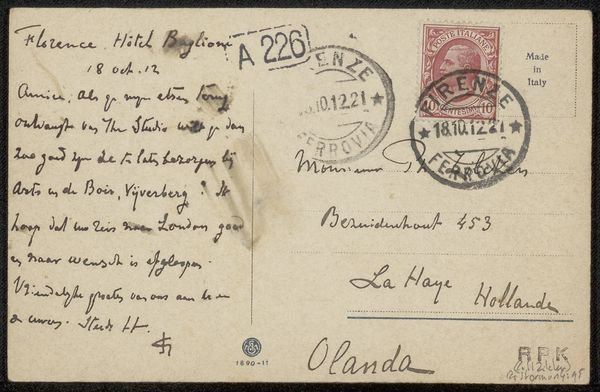 Florence. Hôtel Baglioni
18 oct. 12
A 226
Amice, als ge mijn etsen terug
ontvangt van The Studio wilt ge dan
zoo goed zijn die te laten bezorgen bij
Arts en de Bois, Vijverberg? Ik
hoop dat uw reis naar Londen goed
en naar wensch is afgeloopen.
Vriendelijke groeten van ons aan u en
de uwen. Steeds
FIRENZE
18.10.12.21
FERROVIA
POSTE ITALIANE
10 CENTESIMI 10
FIRENZE
18.10.12.21
FERROVIA
Made
in
Italy
Monsieur Ph. Zilcken
Bezuidenhout 453
La Haye
Hollande
Olanda
1690-11
RPK